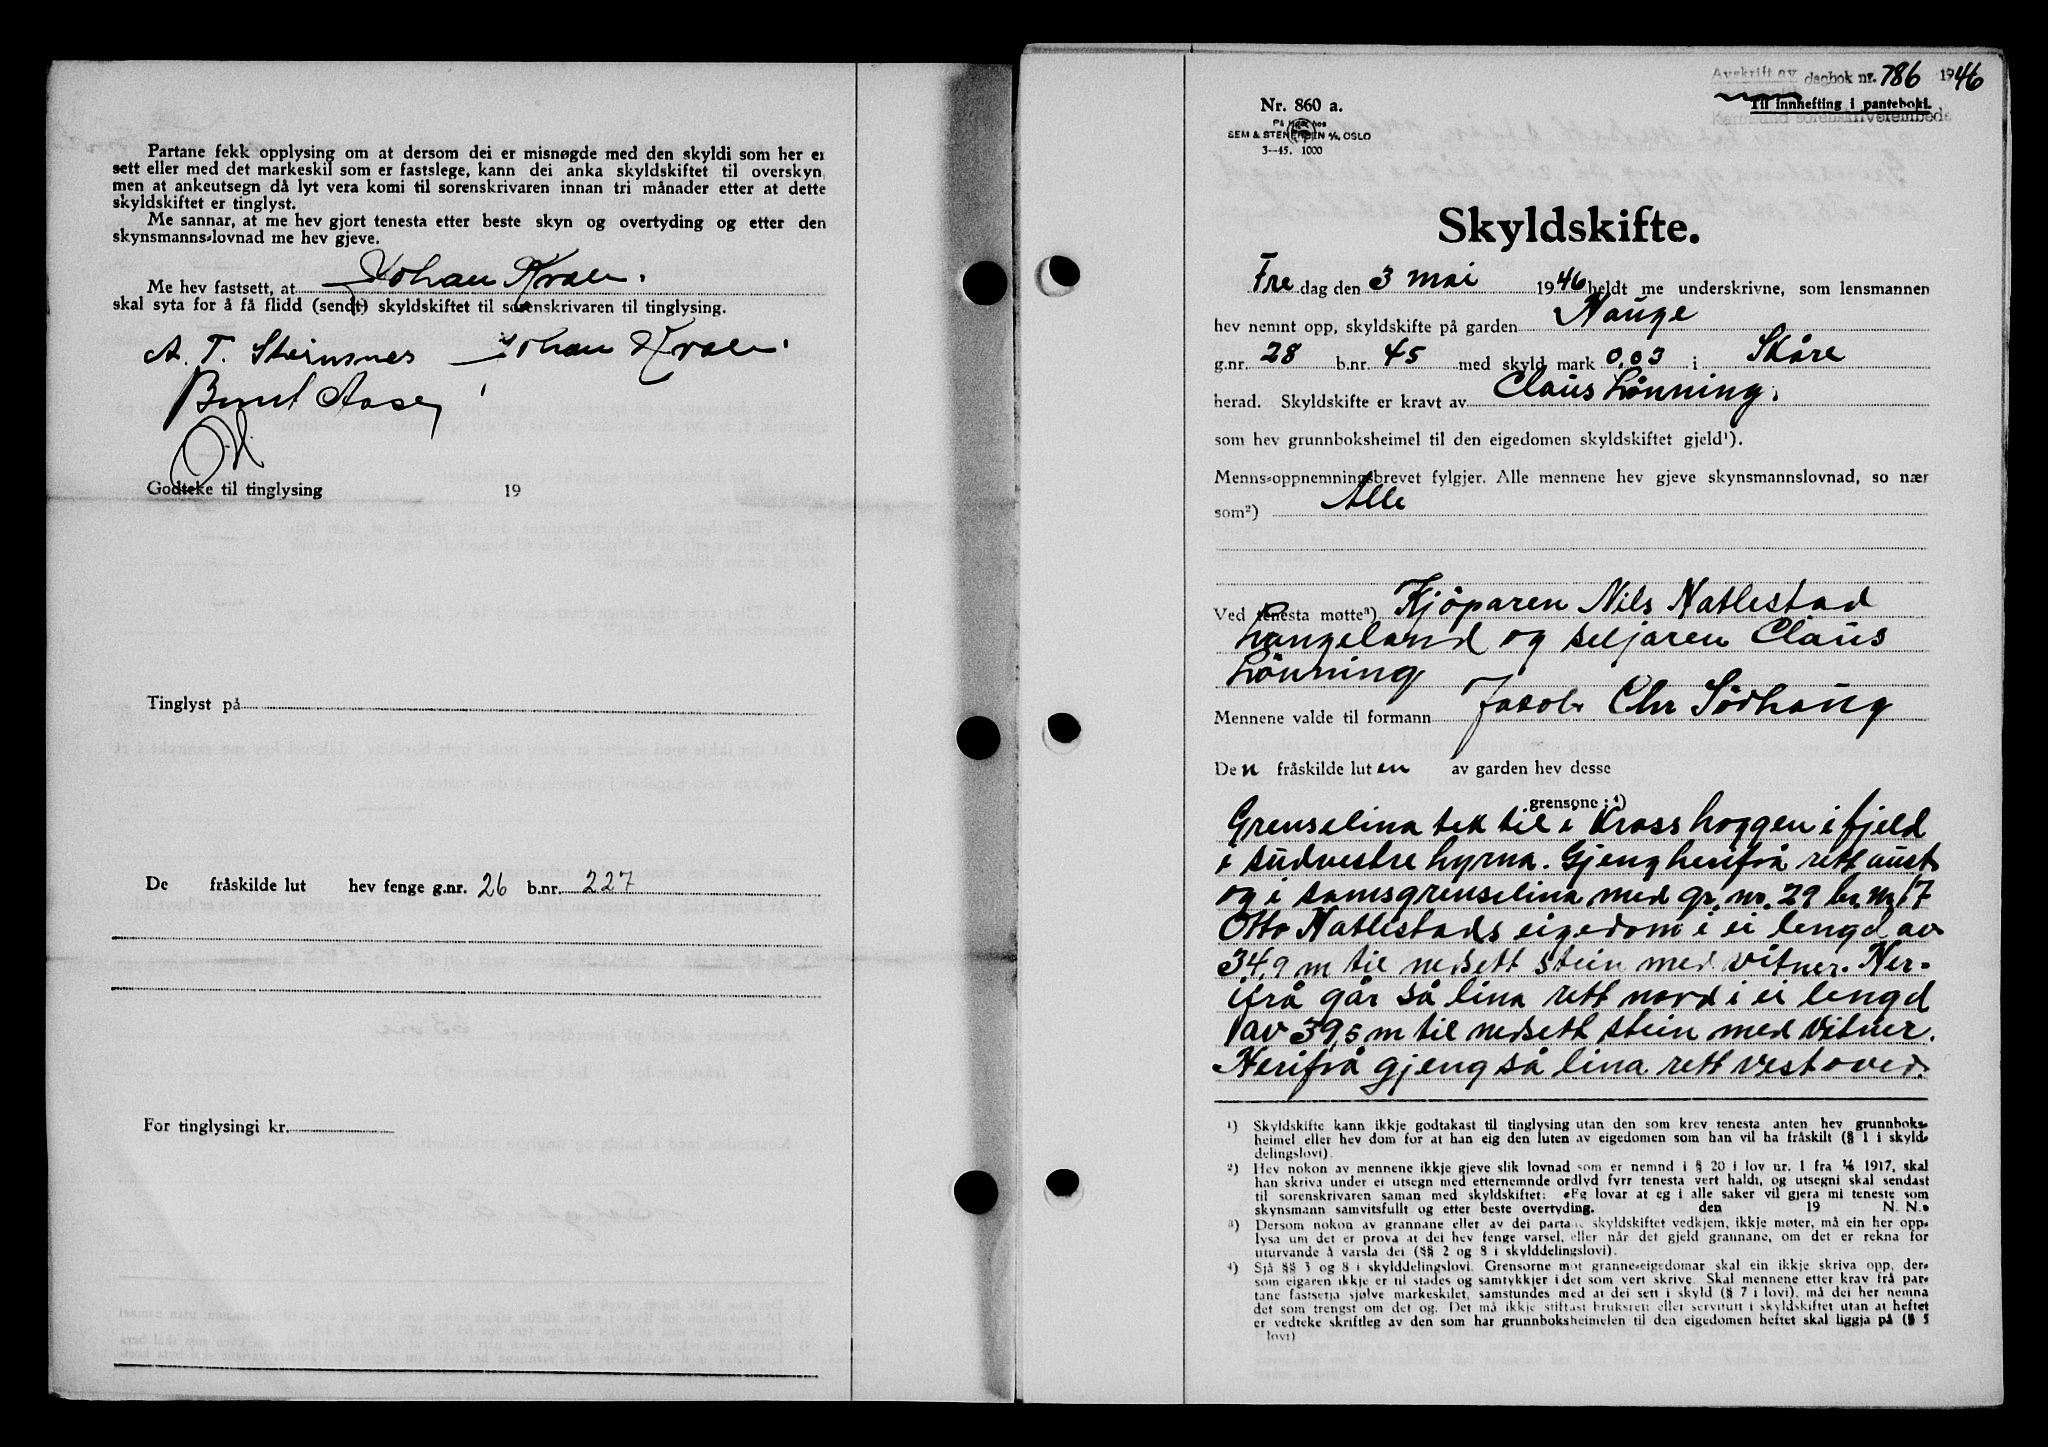 Partane fekk opplysing om at dersom dei er misnøgde med den skyldi som her er
sett eller med det markeskil som er fastslege, kann dei anka skyldskiftet til overskyn,
men at ankeutsegn då lyt vera komi til sorenskrivaren innan tri månader etter at dette
skyldskiftet er tinglyst.
Me sannar, at me hev gjort tenesta etter beste skyn og overtyding og etter den
skynsmanns-lovnad me hev gjeve.
Me hev fastsett, at Johan Kroen.
skal syta for å få flidd (sendt) skyldskiftet til sorenskrivaren til tinglysing.
A. T. Steinsnes Johan
Aase
Godteke til tinglysing 19
Tinglyst på
De fråskilde lut hev fenge g.nr. 26 b.nr. 227
For tinglysingi kr.
Avskrift av dagbok nr. 786 1946
Til innhefting i panteboki.
Karmsund sorenskriverembede
Nr. 860 a.
På lager hos
SEM & STENERSEN A/S, OSLO
3-45. 1000
Skyldskifte.
Fre dag den 3 mai 1946 heldt me underskrivne, som lensmannen
hev nemnt opp, skyldskifte på garden Hauge
g.nr. 28 b.nr. 45 med skyld mark 0,03 i Skåre
herad. Skyldskifte er kravt av Claus Lönning.
som hev grunnboksheimel til den eigedomen skyldskiftet gjeld¹).
Menns-oppnemningsbrevet fylgjer. Alle mennene hev gjeve skynsmannslovnad, so nær
som²) Alle
Ved tenesta møtte³) Kjöparen Nils Natlestad
Langeland og seljaren Claus
Lönning
Mennene valde til formann Jakob Chr Sörhaug
Den fråskilde luten av garden hev desse
grensone:⁴)
Grenselina tek til i Krosshoggen i fjeld
i südvestre hyrna. Gjeng herifrå rett aust
og i samsgrenselina med gr. nr. 29 br. nr 17
Otto Natlestads eigedom i ei lengd av
34,9 m til nedsett stein med vitner. Her-
ifrå går så lina rett nord i ei lengd
av 39,5 m til nedsett stein med vitner.
Herifrå gjeng så lina rett vestover.
¹) Skyldskifte kann ikkje godtakast til tinglysing utan den som krev tenesta anten hev grunnboks-
heimel eller hev dom for at han eig den luten av eigedomen som han vil ha fråskilt (§ 1 i skyld-
delingslovi).
²) Hev nokon av mennene ikkje gjeve slik lovnad som er nemnd i § 20 i lov nr. 1 fra 1/6 1917, skal
han skriva under ei utsegn med etternemnde ordlyd fyrr tenesta vert haldi, og utsegni skal sendast
til sorenskrivaren saman med skyldskiftet: «Eg lovar at eg i alle saker vil gjera mi teneste som
skynsmann samvitsfullt og etter beste overtyding. den 19 N. N.»
³) Dersom nokon av grannane eller av dei partar skyldskiftet vedkjem, ikkje møter, må ein her opp-
lysa um det er prova at dei hev fenge varsel, eller når det gjeld grannane, om det er rekna for
uturvande å varsla dei (§§ 2 og 8 i skylddelingslovi).
⁴) Sjå §§ 3 og 8 i skylddelingslovi. Grensorne mot granne-eigedomar skal ein ikkje skriva opp, der-
som eigaren ikkje er til stades og samtykkjer i det som vert skrive. Skal mennene etter krav frå par-
tane fastsetja sjølve markeskilet, samstundes med at dei sett i skyld (§ 7 i lovi), må dei her nemna
det som trengst om det og. Det må ikkje stiftast bruksrett eller servitutt i skyldskiftet utan at heftet
er vedteke skriftleg av den som har grunnboksheimelen til den eigedomen heftet skal liggja på (§ 5
i lovi)